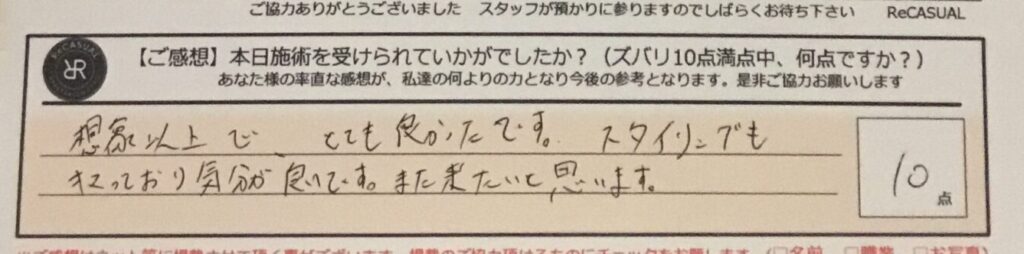 ご協力ありがとうございました スタッフが預かりに参りますのでしばらくお待ち下さい ReCASUAL
ReCASUAL
【ご感想】本日施術を受けられていかがでしたか？（ズバリ10点満点中、何点ですか？）
あなた様の率直な感想が、私達の何よりの力となり今後の参考となります。是非ご協力お願いします
想像以上で、とても良かったです。スタイリングも
キマっており気分が良いです。また来たいと思います。
10点